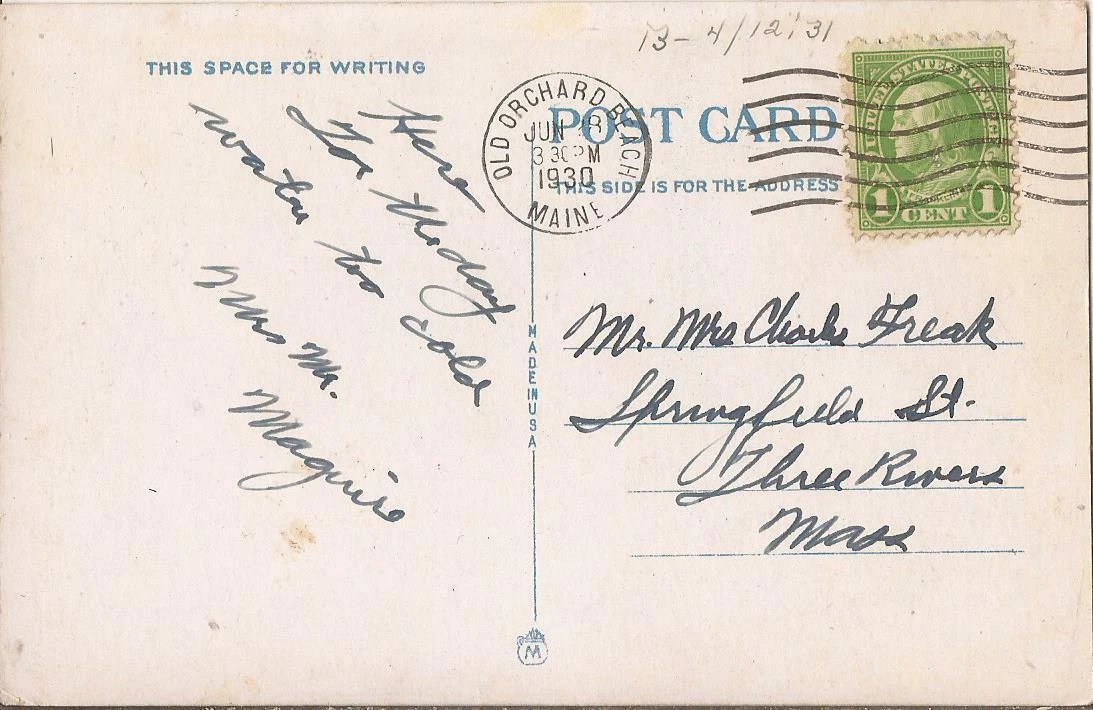 B- 4/12'31
THIS SPACE FOR WRITING
Here
For the day
water too cold
Mrs Mr.
Maguire
OLD ORCHARD BEACH
JUN
3 30 PM
1930
MAINE
POST CARD
THIS SIDE IS FOR THE ADDRESS
UNITED STATES POSTAGE
FRANKLIN
1 CENT 1
Mr. Mrs Charles Freak
Springfield St.
Three Rivers
Mass
MADE IN USA
M